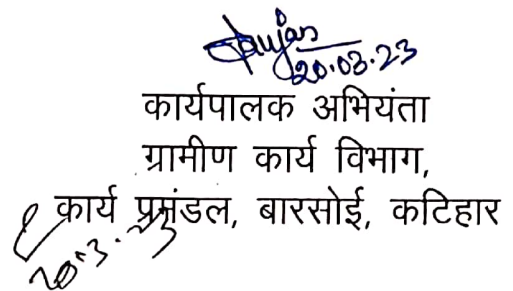 20.03.23
कार्यपालक अभियंता
ग्रामीण कार्य विभाग,
कार्य प्रमंडल, बारसोई, कटिहार
20.3.23